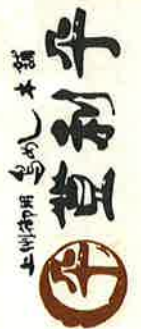 上州御用 鳥めし本舗
平 登利平